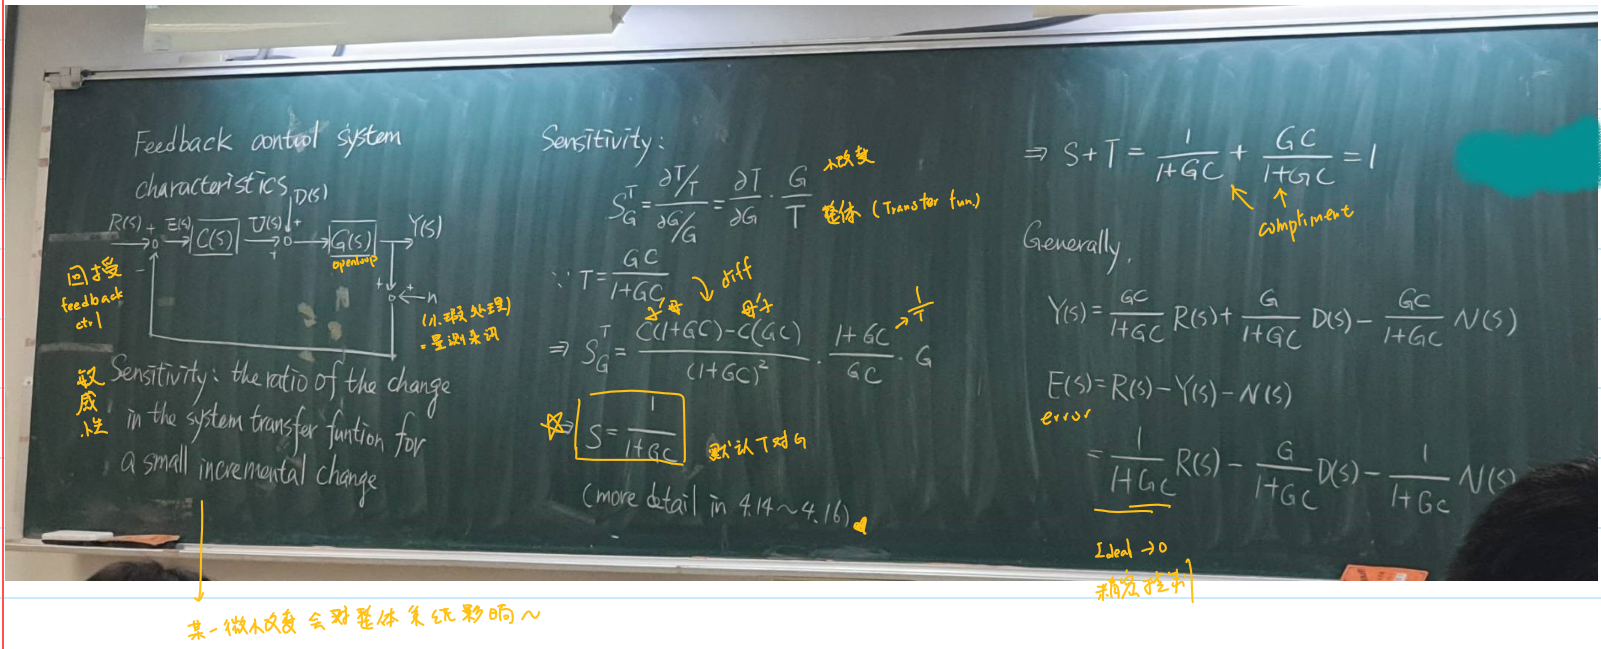 Feedback control system
characteristics
D(s)
R(s) + E(s) C(s) U(s) + G(s) Y(s)
+
openloop
-
回授
feedback
ctrl
+ + n
(小瑕处理)
= 量测杂讯
敏感性
Sensitivity: the ratio of the change
in the system transfer funtion for
a small incremental change
某一微小改变会对整体系统影响~
Sensitivity:
S_G^T = (∂T/T)/(∂G/G) = ∂T/∂G · G/T
小改变
整体 (Transfer fun.)
∵ T = GC/(1+GC)
diff
⇒ S_G^T = (C(1+GC)-C(GC))/(1+GC)² · (1+GC)/GC · G
1/T
☆⇒ S = 1/(1+GC)
默认T对G
(more detail in 4.14~4.16)
⇒ S+T = 1/(1+GC) + GC/(1+GC) = 1
compliment
Generally,
Y(s) = GC/(1+GC) R(s) + G/(1+GC) D(s) - GC/(1+GC) N(s)
E(s) = R(s) - Y(s) - N(s)
error
= 1/(1+GC) R(s) - G/(1+GC) D(s) - 1/(1+GC) N(s)
Ideal → 0